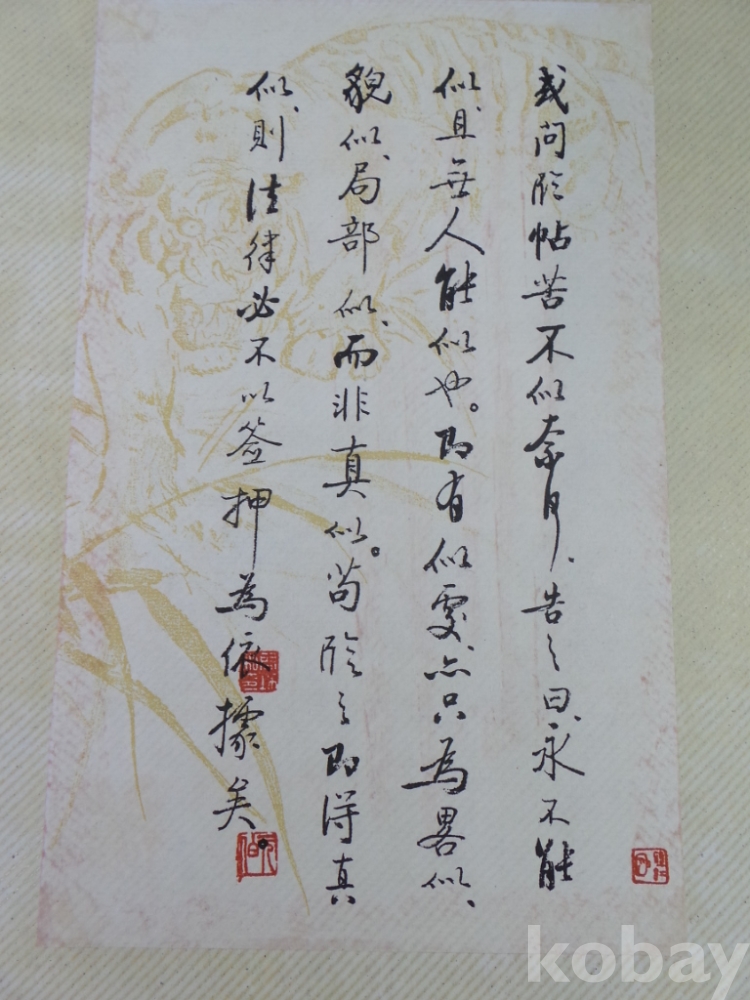 或问临帖苦不似奈何、告之曰、永不能
似、且无人能似也。即有似处、亦只为略似、
貌似、局部似、而非真似。苟临之即得真
似、则法律必不以签押为依据矣。
kobay